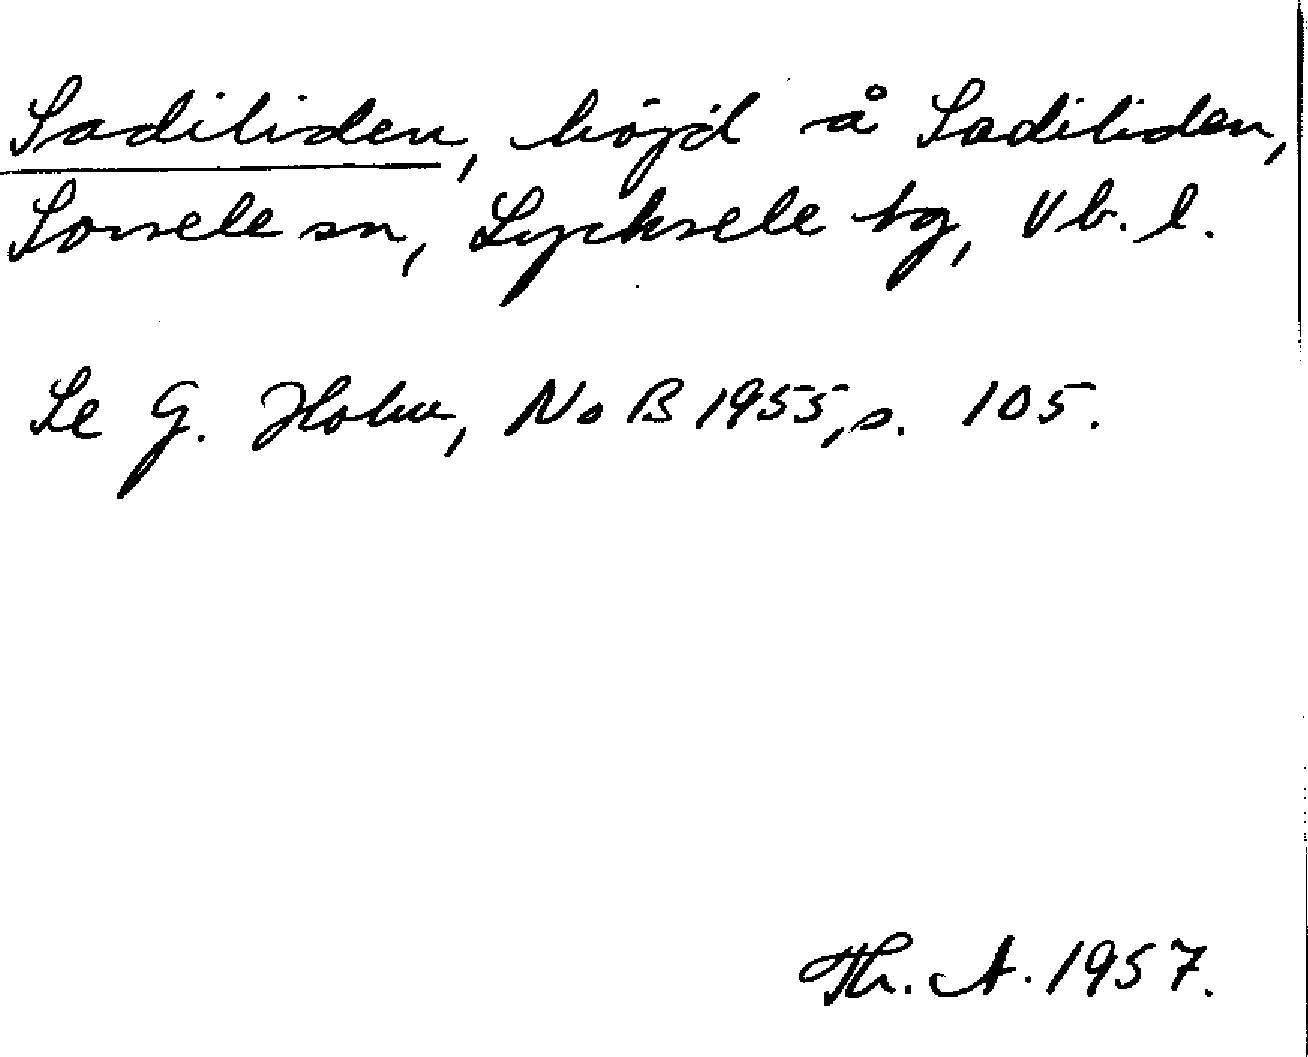 Sadiliden, höjd å Sadiliden,
Sorsele sn, Lycksele tg, Vb. l.
Se G. Holm, NoB 1955, s. 105.
Th. A. 1957.